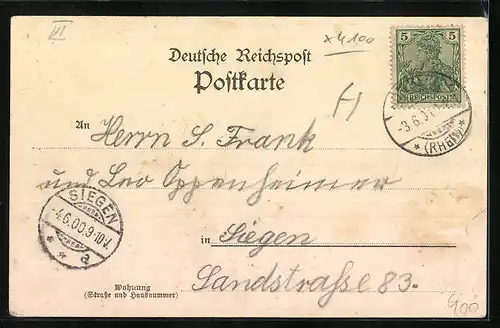 VI
x 4100
Deutsche Reichspost
Postkarte
5 5
REICHSPOST
-3.6.
(RHein)
An Herrn S. Frank
und Leo Oppenheimer
SIEGEN
-4.6.00.9-10V.
a
in Siegen
Sandstraße 83.
Wohnung
(Straße und Hausnummer)
400